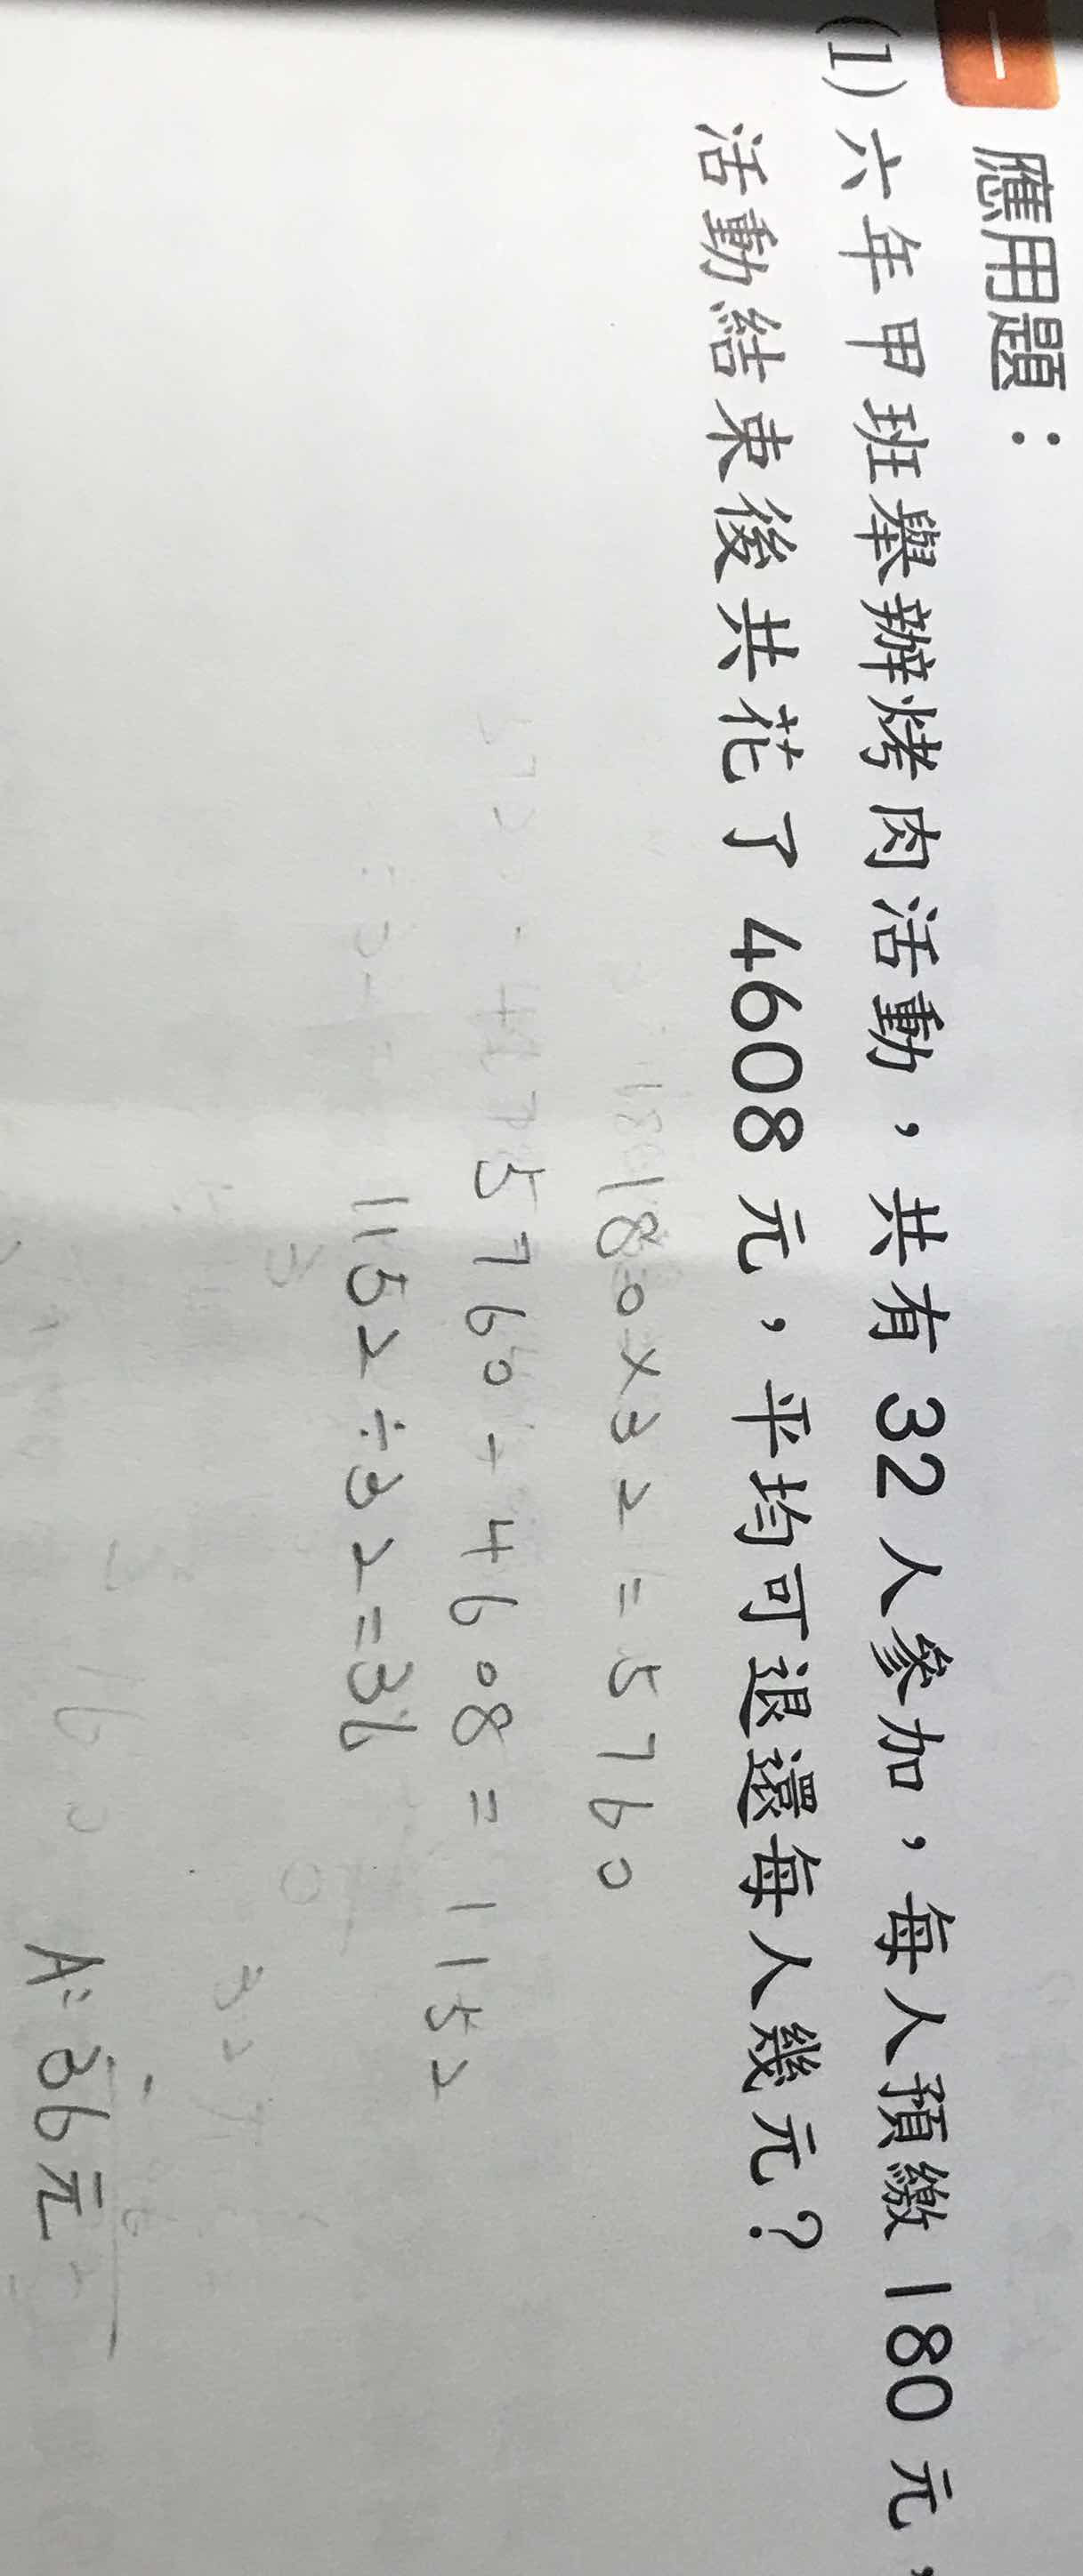 一 應用題：
(1) 六年甲班舉辦烤肉活動，共有 32 人參加，每人預繳 180 元，
活動結束後共花了 4608 元，平均可退還每人幾元？
180×32=5760
5760-4608=1152
1152÷32=36
A:36元